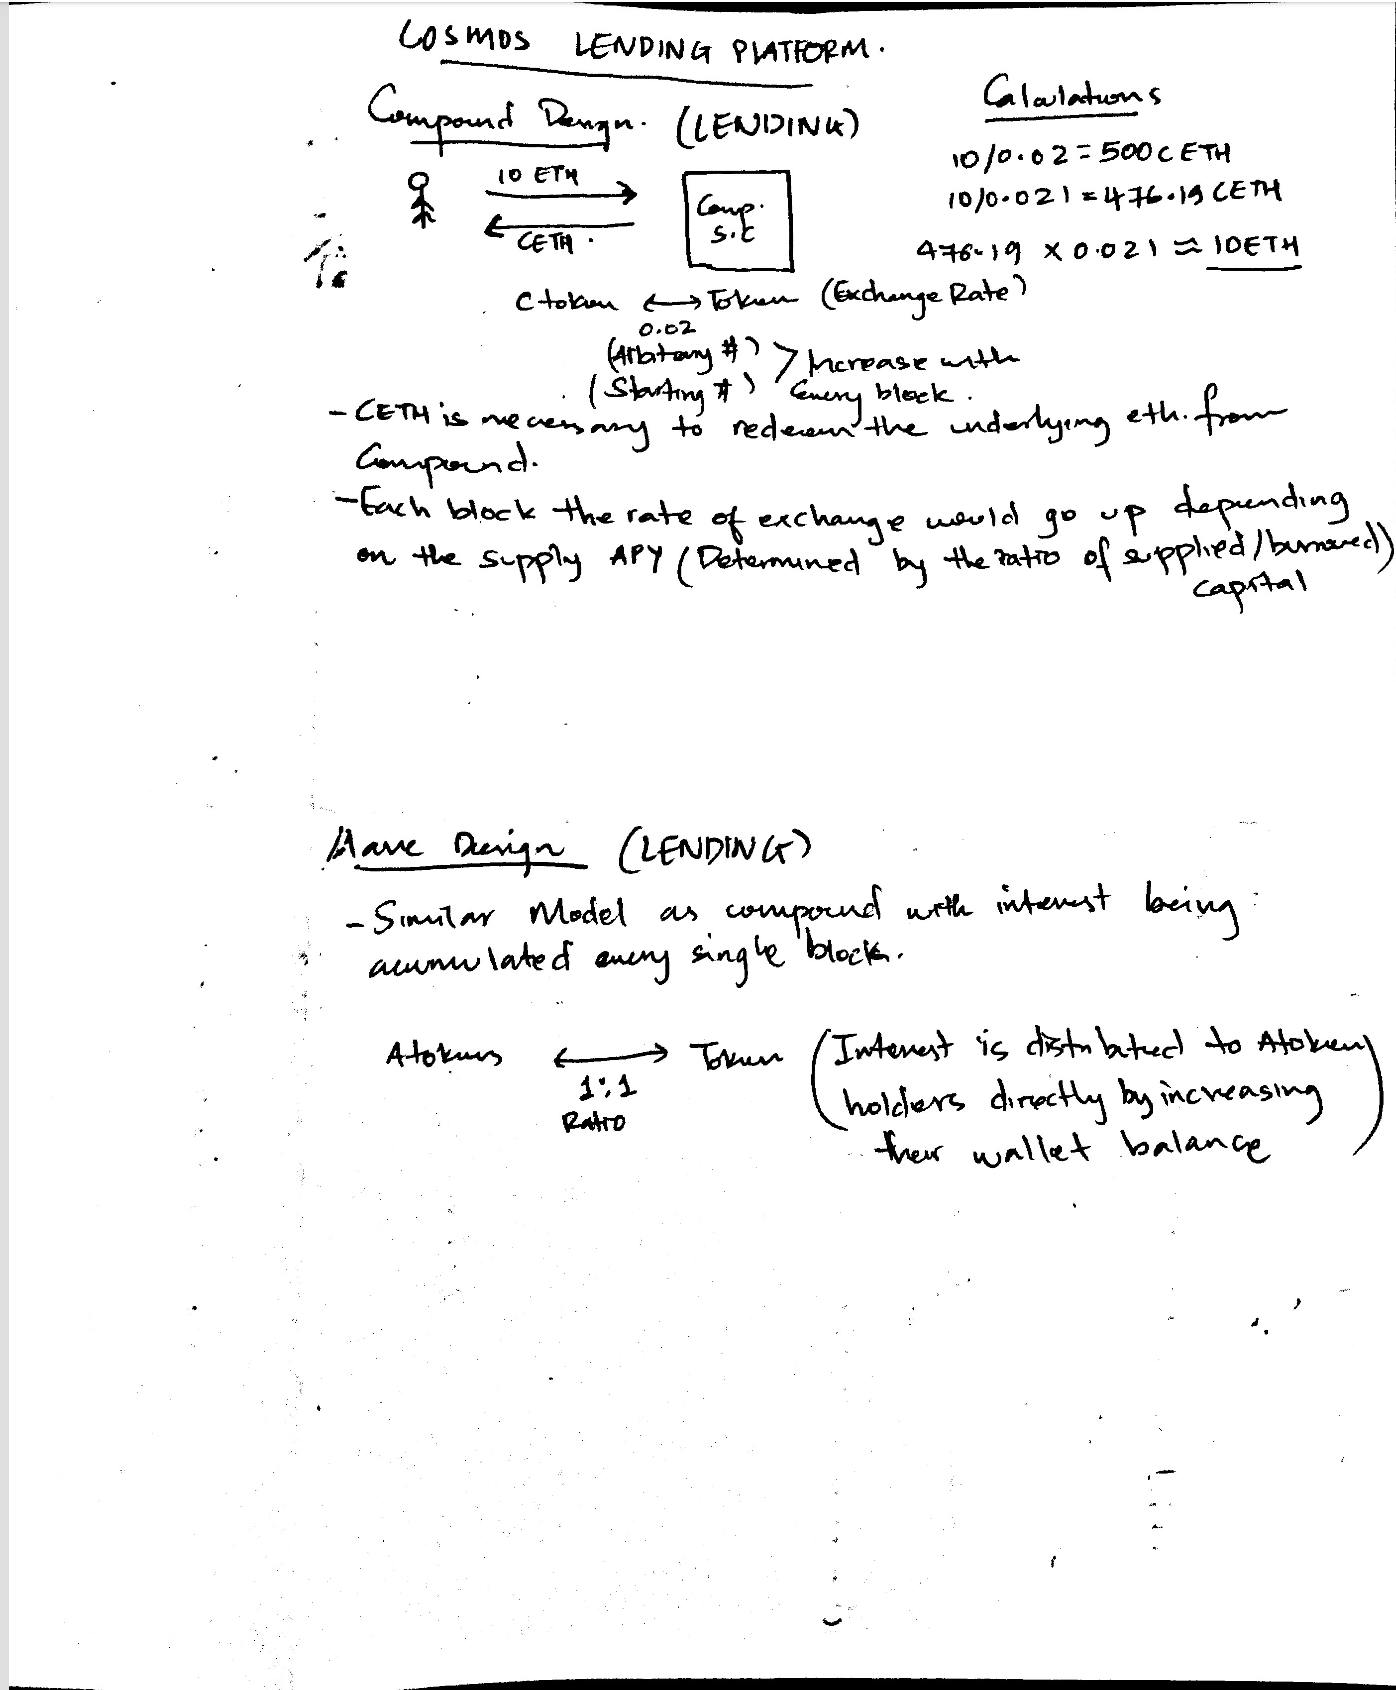 COSMOS LENDING PLATFORM.
Compound Design. (LENDING)
10 ETH
CETH.
Comp.
S.C
Calculations
10/0.02 = 500 CETH
10/0.021 = 476.19 CETH
476.19 × 0.021 ≈ 10ETH
Ctoken ⟷ Token (Exchange Rate)
0.02
(Arbitary #)
(Starting #)
> Increase with
every block.
- CETH is necessary to redeem the underlying eth. from
Compound.
- Each block the rate of exchange would go up depending
on the supply APY (Determined by the ratio of supplied/borrowed)
capital
Aave Design (LENDING)
- Similar Model as compound with interest being
acumulated every single block.
Atokens ⟷ Token
1:1
Ratio
(Interest is distributed to Atoken
holders directly by increasing
their wallet balance)